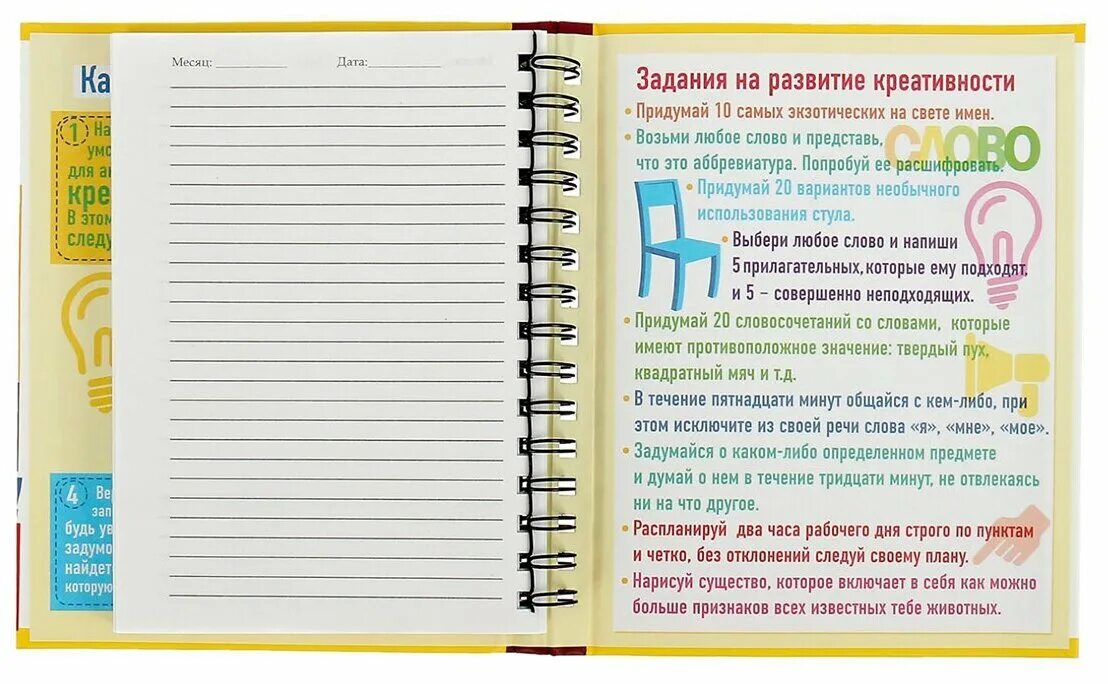 Ка
1
На
умс
для ак
кре
В этом
следу
4
Ве
зап
будь ув
задумо
найдет
которую
Месяц: ___________ Дата:___________
Задания на развитие креативности
• Придумай 10 самых экзотических на свете имен.
• Возьми любое слово и представь,
что это аббревиатура. Попробуй ее расшифровать.
СЛОВО
• Придумай 20 вариантов необычного
использования стула.
• Выбери любое слово и напиши
5 прилагательных, которые ему подходят,
и 5 – совершенно неподходящих.
• Придумай 20 словосочетаний со словами, которые
имеют противоположное значение: твердый пух,
квадратный мяч и т.д.
• В течение пятнадцати минут общайся с кем-либо, при
этом исключите из своей речи слова «я», «мне», «мое».
• Задумайся о каком-либо определенном предмете
и думай о нем в течение тридцати минут, не отвлекаясь
ни на что другое.
• Распланируй два часа рабочего дня строго по пунктам
и четко, без отклонений следуй своему плану.
• Нарисуй существо, которое включает в себя как можно
больше признаков всех известных тебе животных.